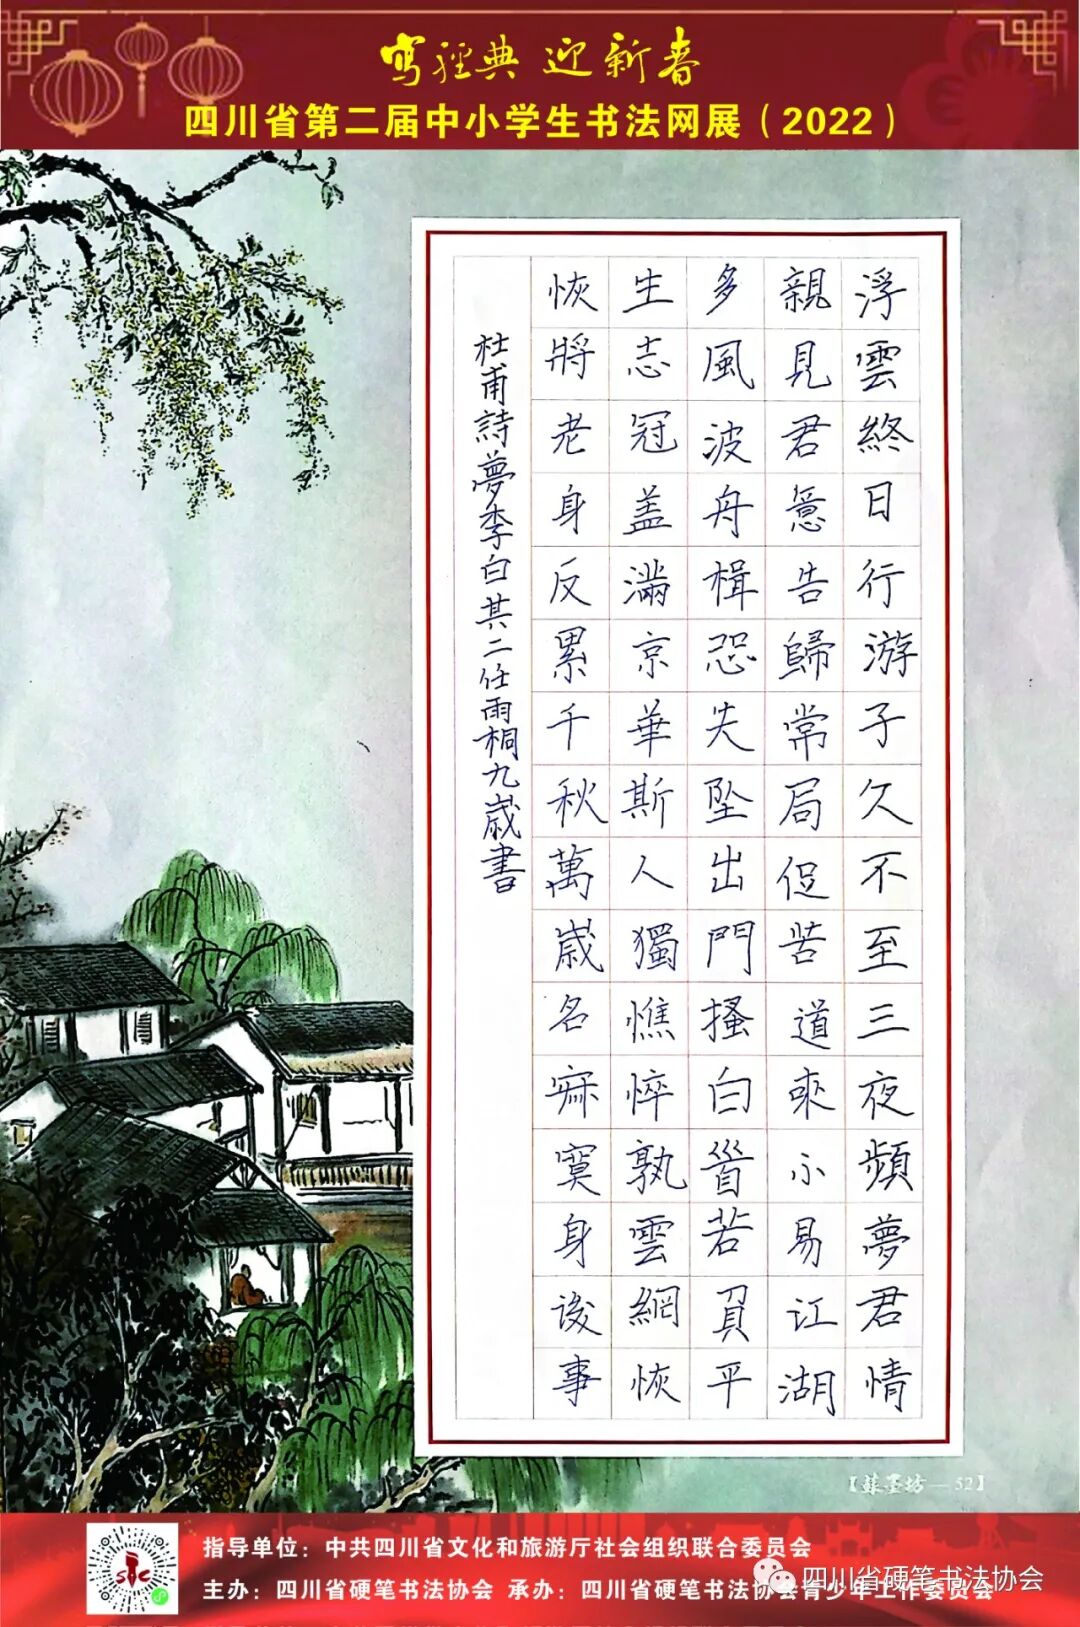 写经典 迎新春
四川省第二届中小学生书法网展（2022）
浮雲終日行游子久不至三夜頻夢君情
親見君意告歸常局促苦道來不易江湖
多風波舟楫恐失坠出門搔白首若負平
生志冠盖滿京華斯人獨憔悴孰雲網恢
恢將老身反累千秋萬歲名寂寞身後事
杜甫詩夢李白其二任雨桐九歲書
【蘇墨坊—52】
指导单位：中共四川省文化和旅游厅社会组织联合委员会
主办：四川省硬笔书法协会 承办：四川省硬笔书法协会青少年工作委员会
四川省硬笔书法协会